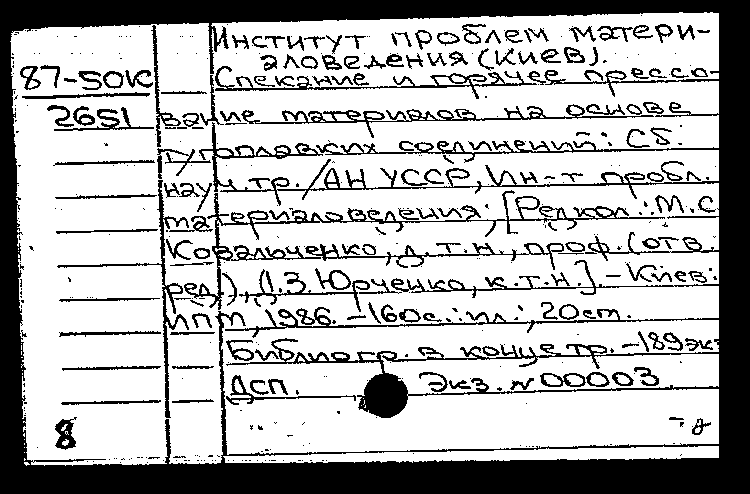 Институт проблем матери-
аловедения (Киев).
87-50К Спекание и горячее прессо-
2651 вание материалов на основе
тугоплавких соединений: Сб.
науч. тр. / АН УССР, Ин-т пробл.
материаловедения; [Редкол.: М.С
Ковальченко, д.т.н., проф. (отв.
ред.), Юрченко, к.т.н.]. - Киев:
ИПМ, 1986. - 160с.: ил.; 20см.
Библиогр. в конце тр. - 189экз
Дсп. Экз. №00003.
8